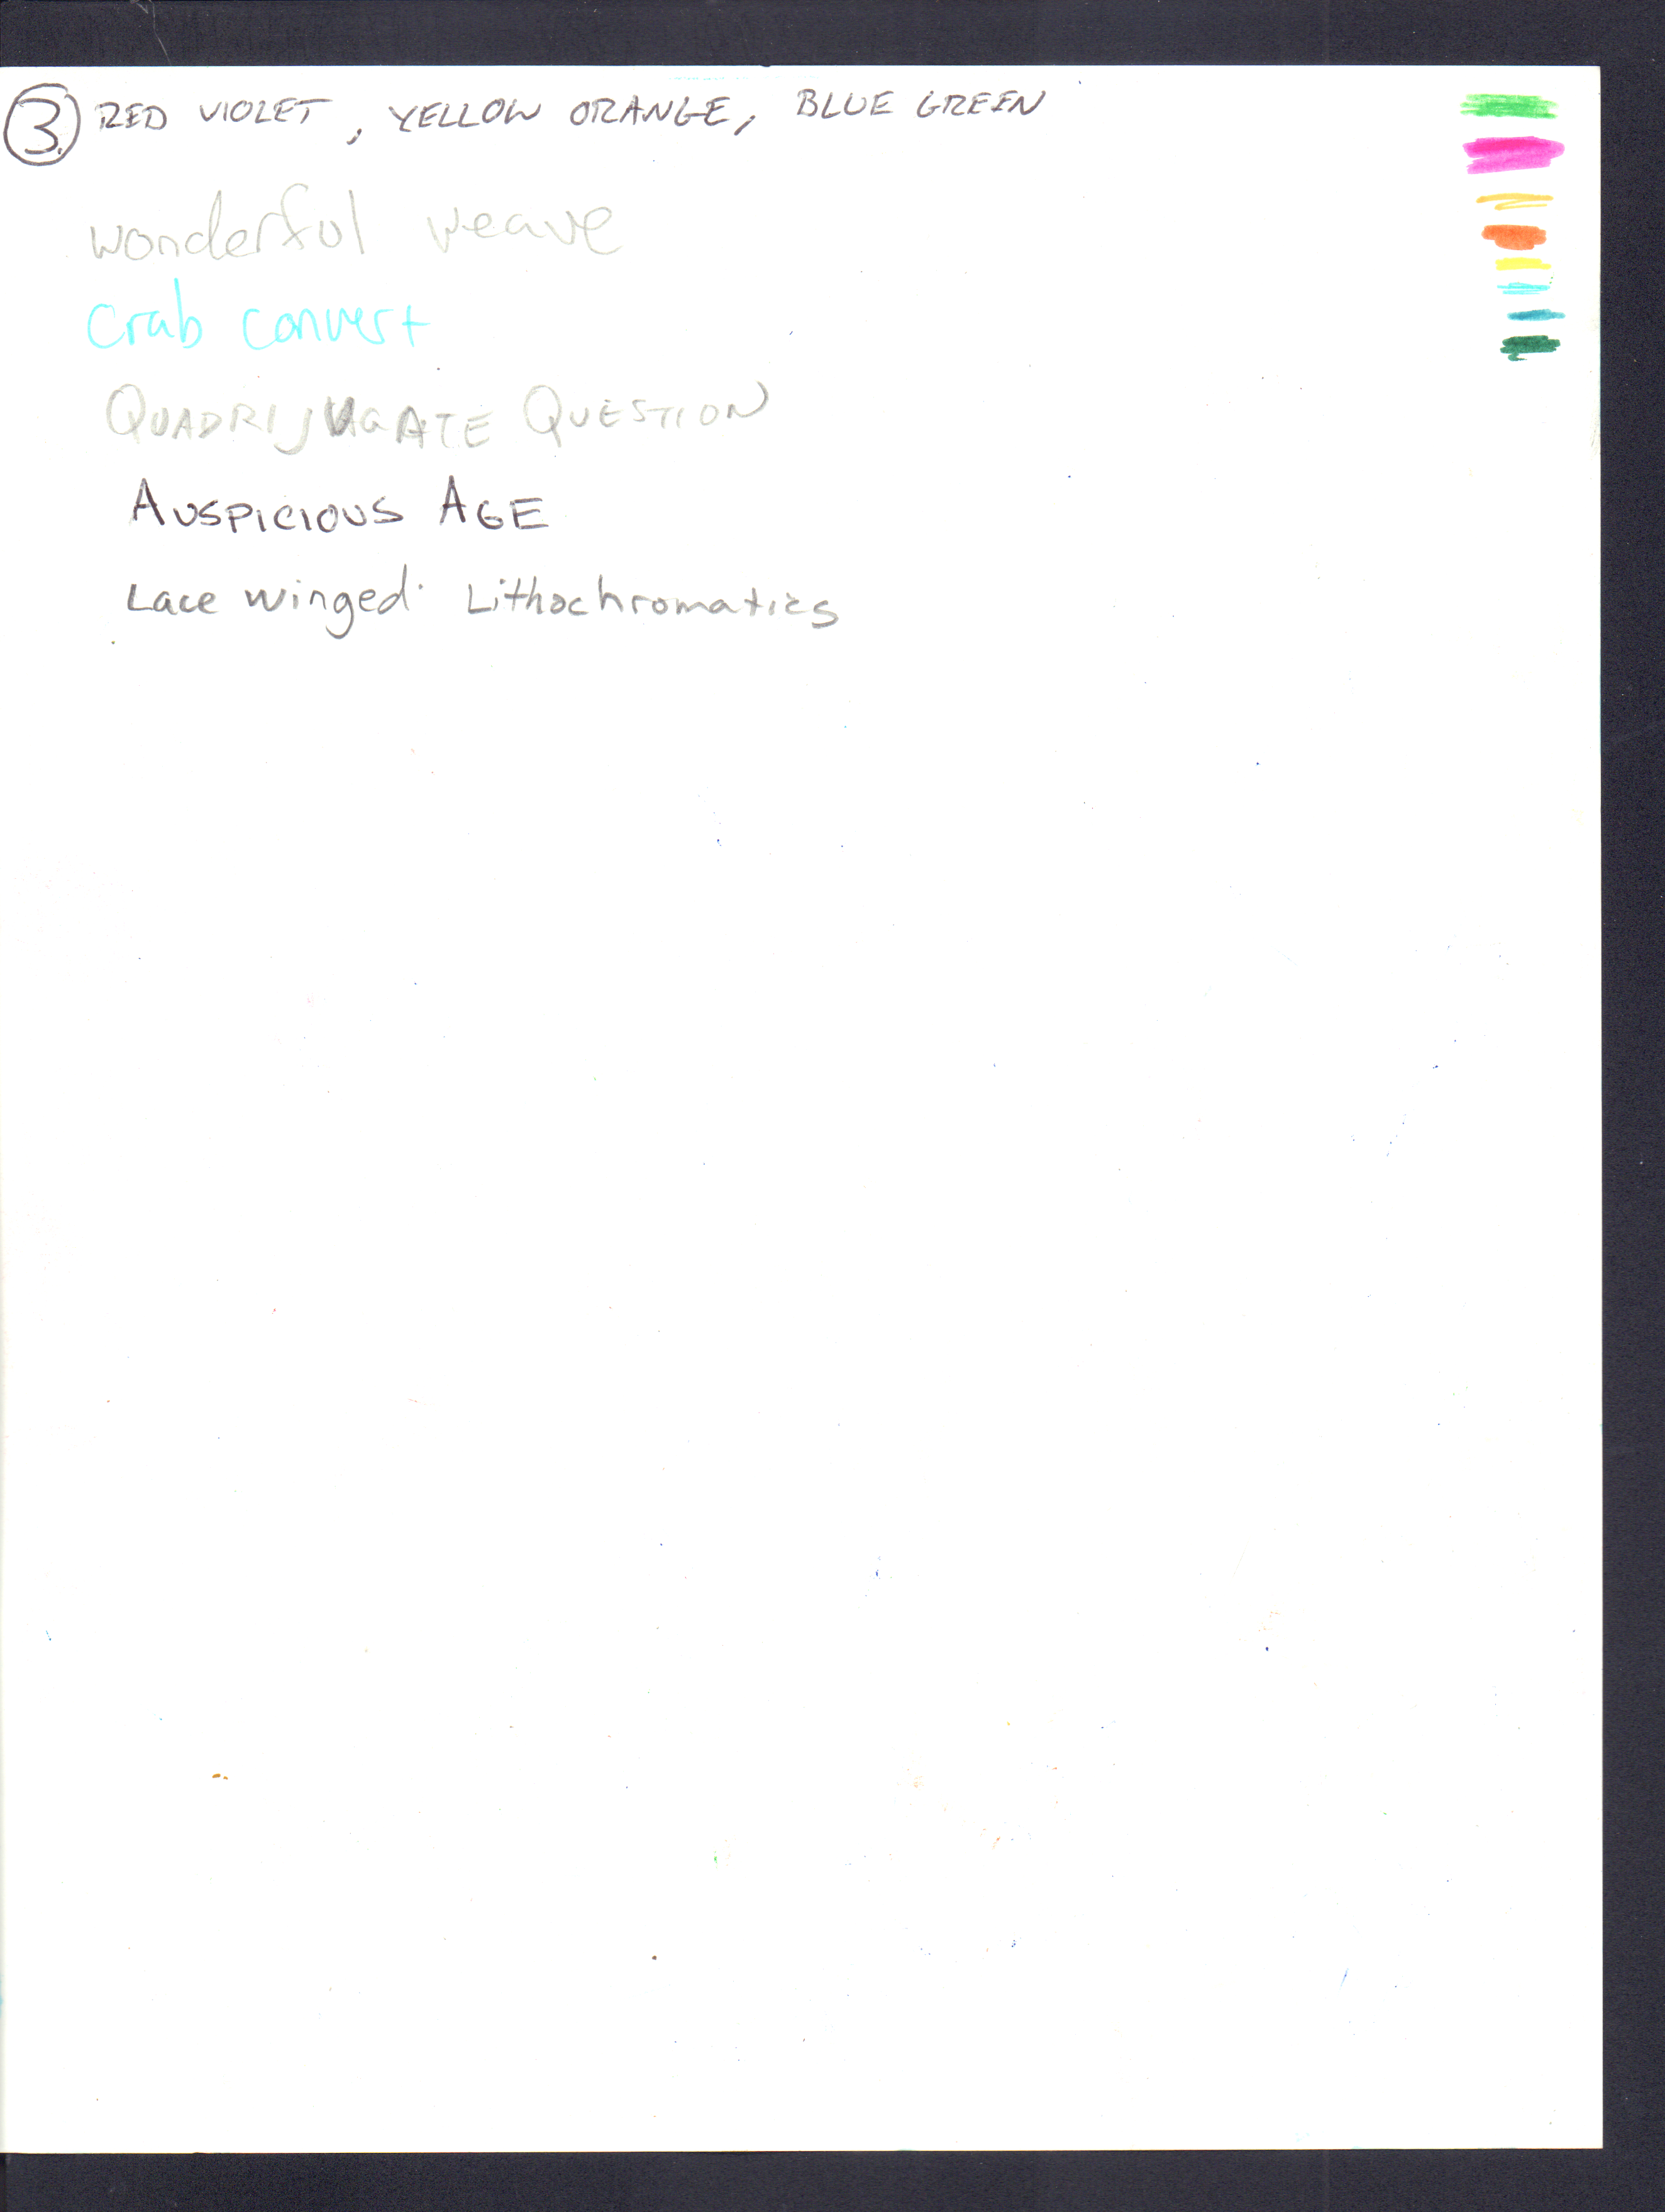 3. RED VIOLET, YELLOW ORANGE, BLUE GREEN
wonderful weave
Crab convert
QUADRIJUGATE QUESTION
AUSPICIOUS AGE
Lace winged Lithochromatics